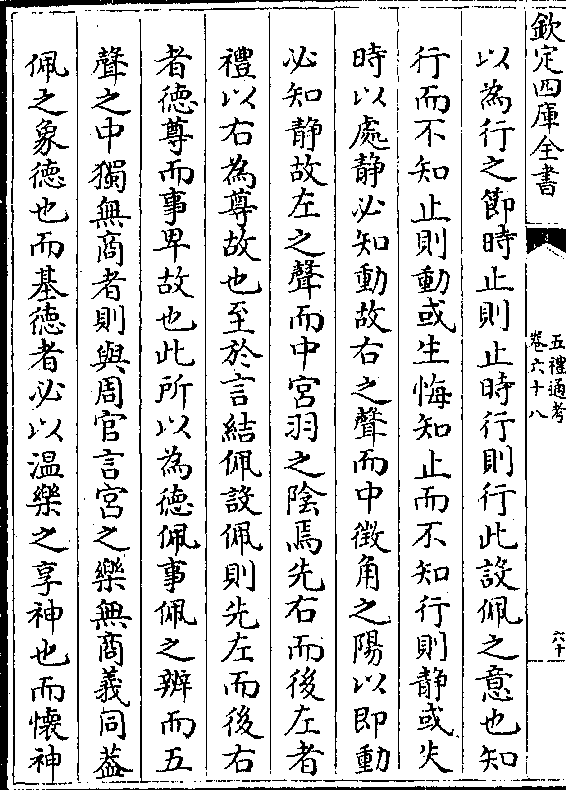 欽定四庫全書
五禮通考
卷六十八
六十
以為行之節時止則止時行則行此設佩之意也知
行而不知止則動或生悔知止而不知行則静或失
時以處静必知動故右之聲而中徴角之陽以即動
必知静故左之聲而中宮羽之陰焉先右而後左者
禮以右為尊故也至於言結佩設佩則先左而後右
者德尊而事卑故也此所以為德佩事佩之辨而五
聲之中獨無商者則與周官言宮之樂無商義同葢
佩之象德也而基德者必以温樂之享神也而懷神